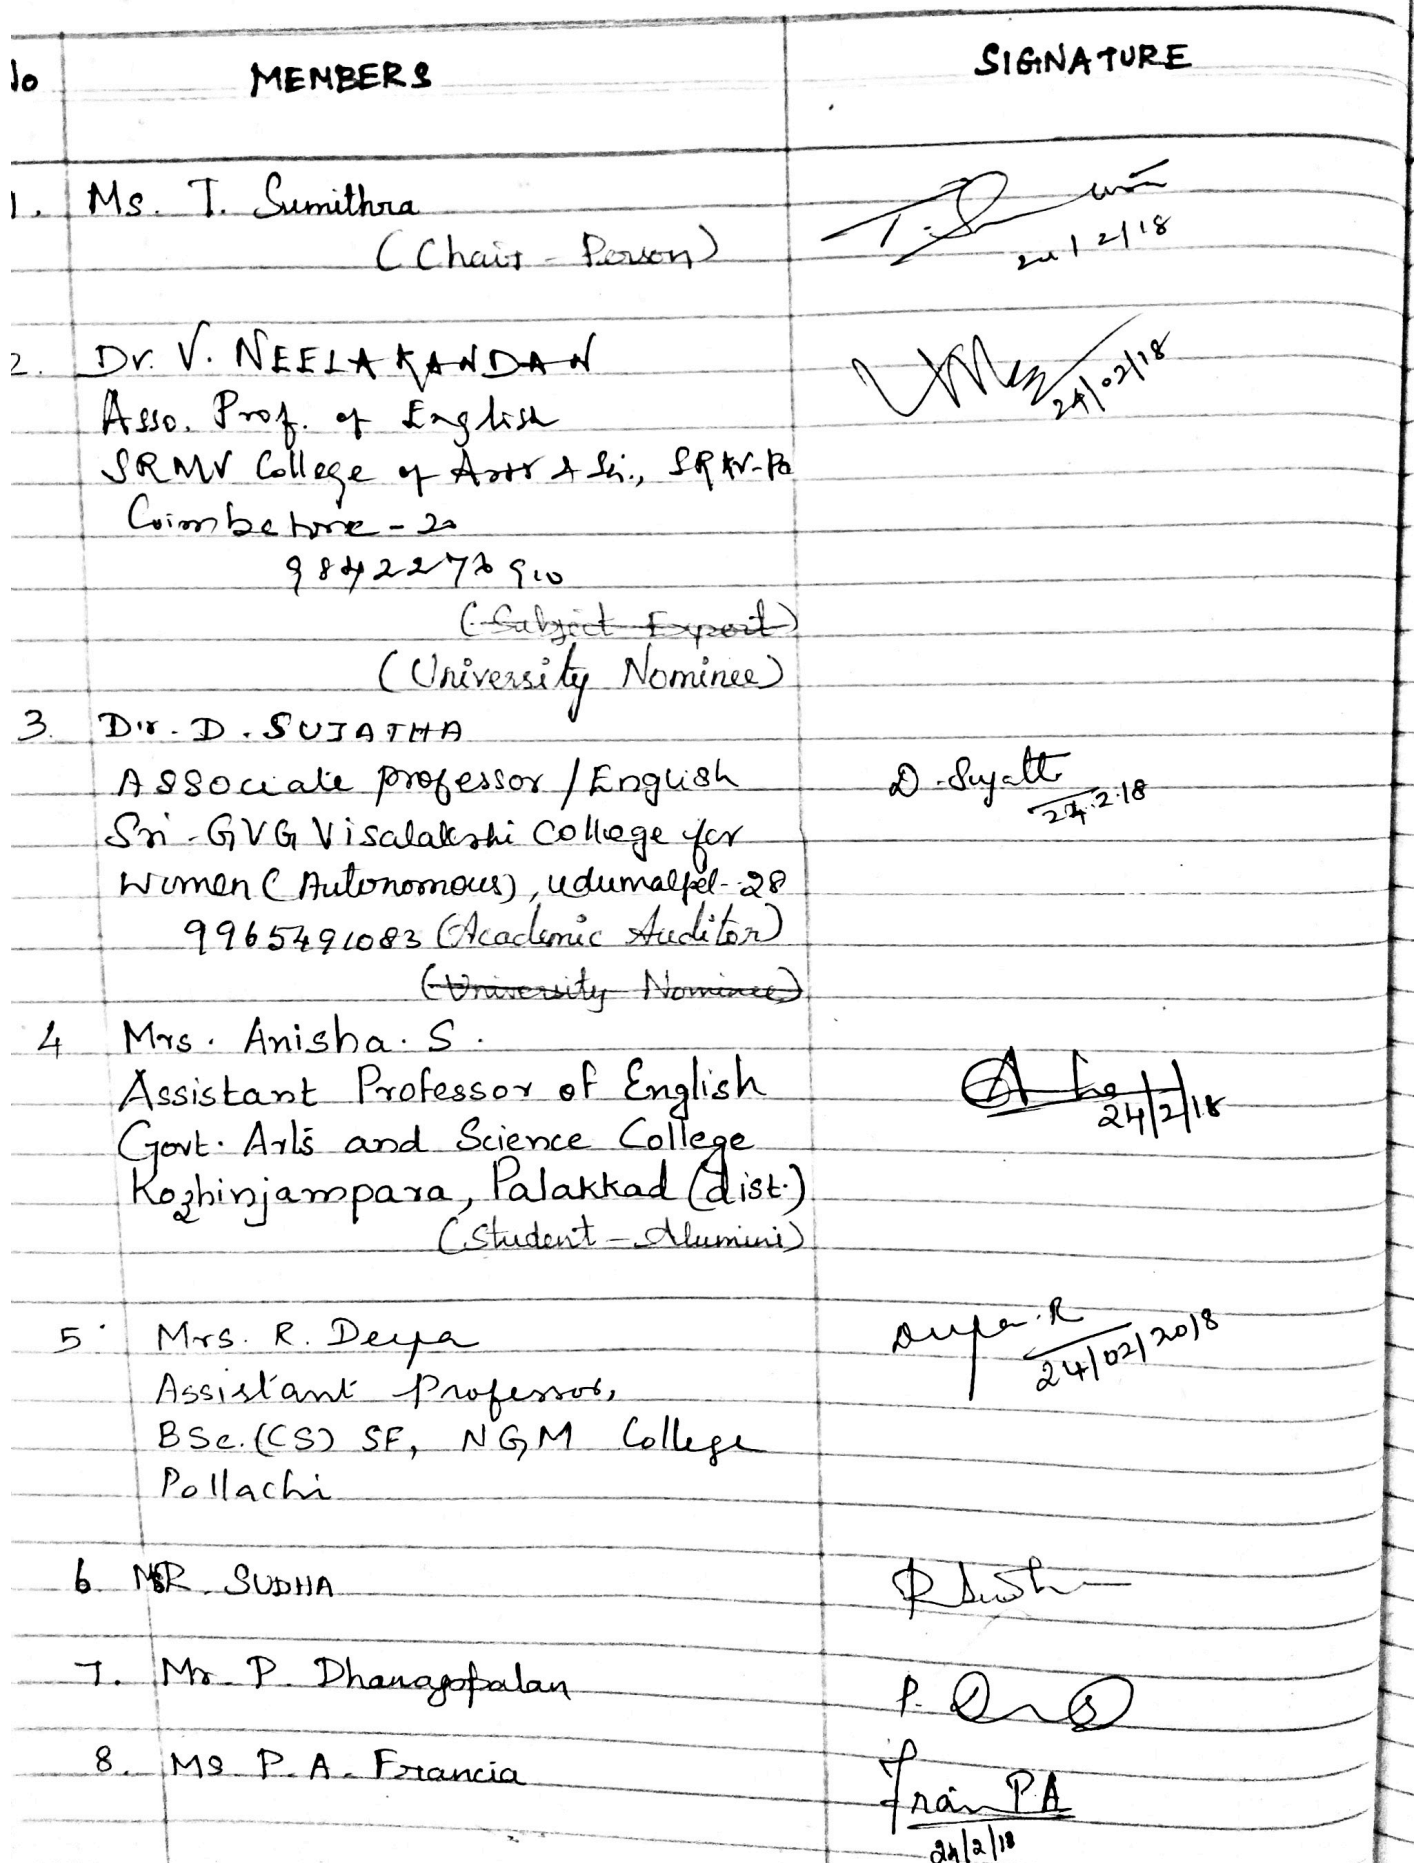 No MEMBERS SIGNATURE
1. Ms. T. Sumithra
(Chair - Person)
24/2/18
2. Dr. V. NEELAKANDAN
24/02/18
Asso. Prof. of English
SRMV College of Arts & Sci., SRKV-Po
Coimbatore - 20
(Subject Expert)
(University Nominee)
3. Dr. D. SUJATHA
Associate professor / English D. Sujatha
Sri. GVG Visalakshi College for 24.2.18
Women (Autonomous), udumalpet-28
9965491083 (Academic Auditor)
(University Nominee)
4 Mrs. Anisha. S.
Assistant Professor of English
Govt. Arts and Science College 24/2/18
Kozhinjampara, Palakkad (dist.)
(Student - Alumini)
5. Mrs. R. Deepa Deepa.R
24/02/2018
Assistant Professor,
BSc.(CS) SF, NGM College
Pollachi
6. R. SUDHA R Sudha
7. Mr. P. Dhanagopalan P.
8. Ms. P. A. Francia
Fran P.A
24/2/18